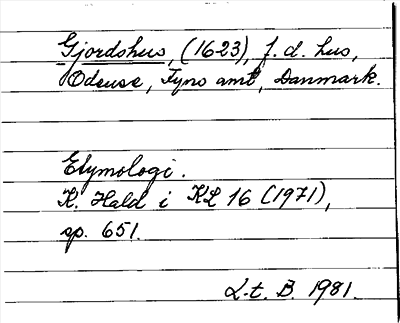 Gjordshus, (1623), f. d. hus,
Odense, Fyns amt, Danmark.
Etymologi.
K. Hald i KL 16 (1971),
sp. 651.
L-t. B. 1981.